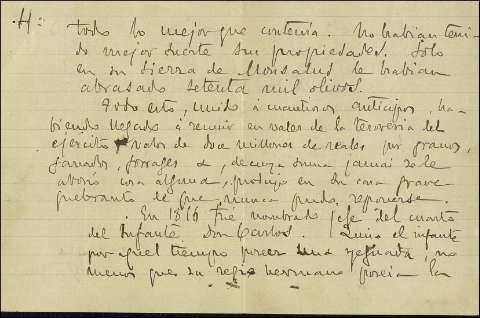 .H:
todo lo mejor que contenia. No habian teni-
do mejor suerte sus propiedades. Solo
en su sierra de Monsalud le habian
abrasado setenta mil olivos.
Todo esto, unido á cuantiosos anticipos, ha-
biendo llegado á reunir en vales de la tesoreria del
ejército valor de doce millones de reales por granos,
ganados, forrages &, de cuya suma jamás se le
abonó cosa alguna, produjo en su casa grave
quebranto de que nunca pudo reponerse.
En 1816 fué nombrado jefe del cuarto
del Infante Don Carlos. Quiso el infante
por aquel tiempo poseer una yeguada, no
menos que su regio hermano poseia la